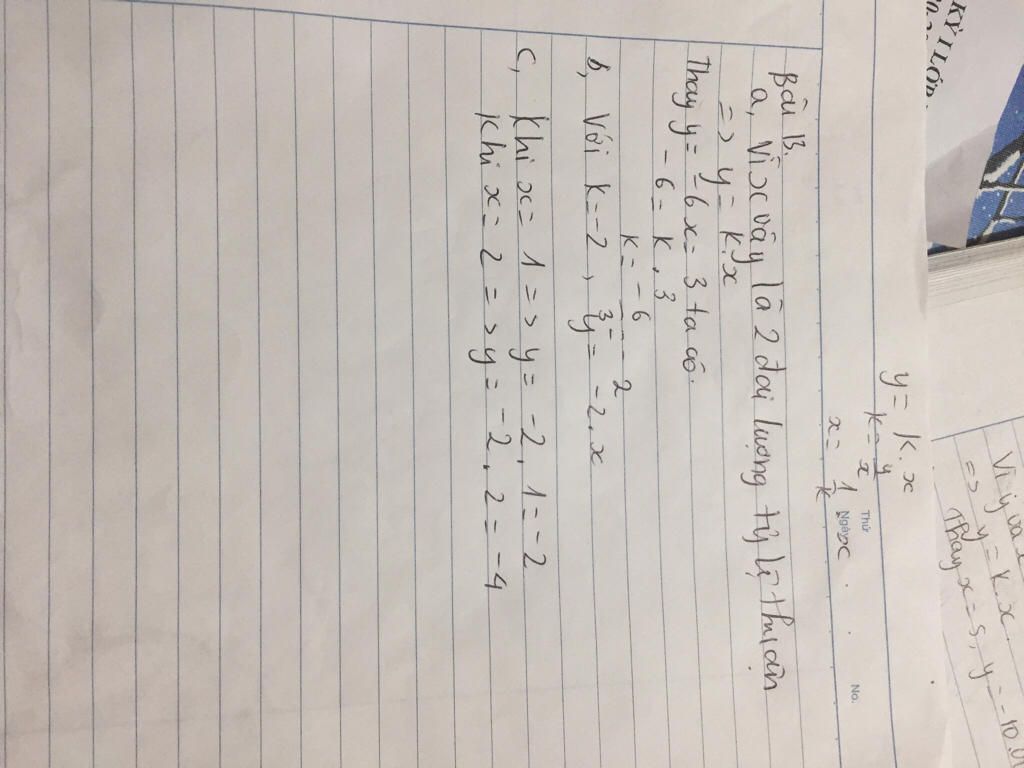 y = k.x
k = y/x
x = 1/k . x
Thứ
Ngày
No.
Bài 13.
a, Vì x và y là 2 đại lượng tỷ lệ thuận
=> y = k.x
Thay y = -6 x = 3 ta có.
-6 = k.3
k = -6/3 = -2
b, Với k = -2, y = -2.x
c, Khi x = 1 => y = -2.1 = -2
Khi x = 2 => y = -2.2 = -4
Vì y và
=> y = k.x
Thay x = 5, y = -10.